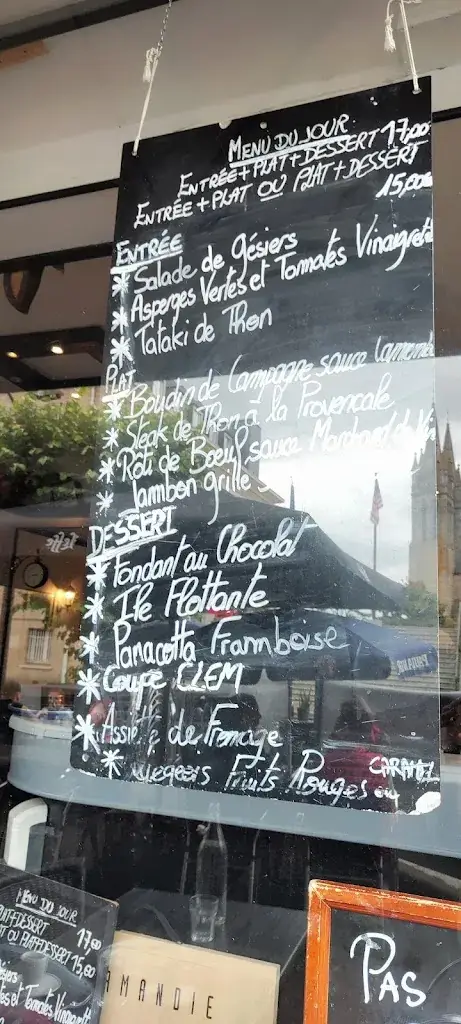 MENU DU JOUR
ENTRÉE+PLAT+DESSERT 17,00
ENTRÉE+PLAT OU PLAT+DESSERT
15,00€
ENTRÉE
* Salade de gésiers
* Asperges Vertes et Tommates Vinaigrette
* Tataki de Thon
PLAT
* Boudin de Campagne sauce
* Steak de Thon à la Provencale
* Rôti de Boeuf, sauce Marchand de
* Jambon grille
DESSERT
* Fondant au Chocolat
* Ile Flottante
* Panacotta Framboise
* Coupe CLEM
* Assiette de Fromage
* Liegeois Fruits Rouges ou
CARAMEL
MENU DU JOUR
PLAT+DESSERT 17,00
OU PLAT+DESSERT 15,00
et Tomates Vinaigrett
RMANDIE
PAS